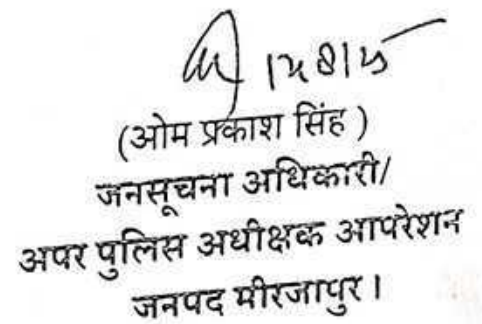 (ओम प्रकाश सिंह )
जनसूचना अधिकारी/
अपर पुलिस अधीक्षक आपरेशन
जनपद मीरजापुर ।